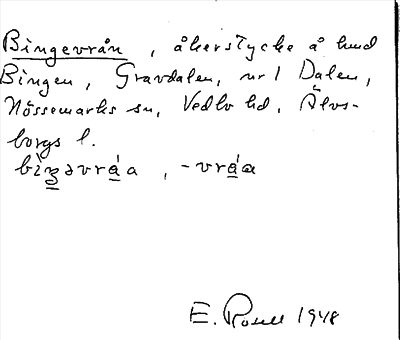 Bingevrån, åkerstycke å hmd
Bingen, Gravdalen, nr 1 Dalen,
Nössemarks sn, Vedbo hd, Älvs-
borgs l.
bìŋəvrá̱a, -vrá̱a
E. Rosell 1948